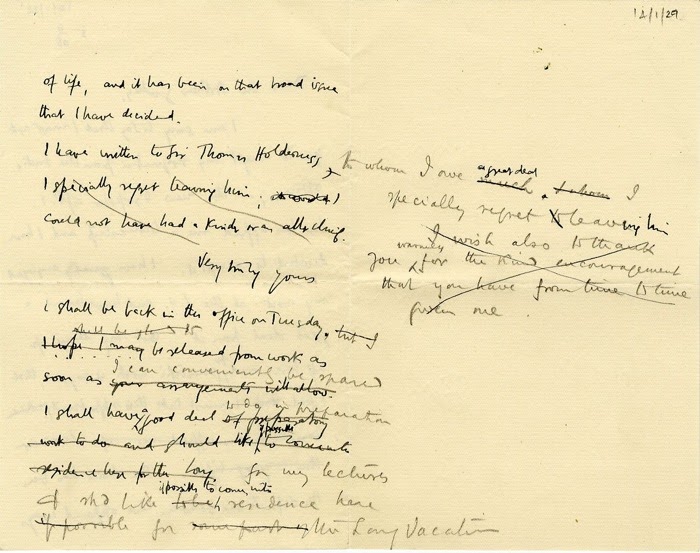 12/1/29
of life, and it has been on that broad issue
that I have decided.
I have written to Sir Thomas Holderness,
I specially regret leaving him;
could not have had a kinder or an abler chief.
Very truly yours
I shall be back in the office on Tuesday, but I
shall be glad
I hope I may be released from work as
I can conveniently be spared
soon as your arrangements will allow.
to do in preparation
I shall have a good deal of preparatory
if possible
work to do and should like to
residence here for the Long
for my lectures
if possible to come into
I shd like to be residence here
if possible for some part of the Long Vacation
to whom I owe
a great deal
much to whom I
specially regret leaving him
I wish also to thank
warmly
you for the kind encouragement
that you have from time to time
given me.